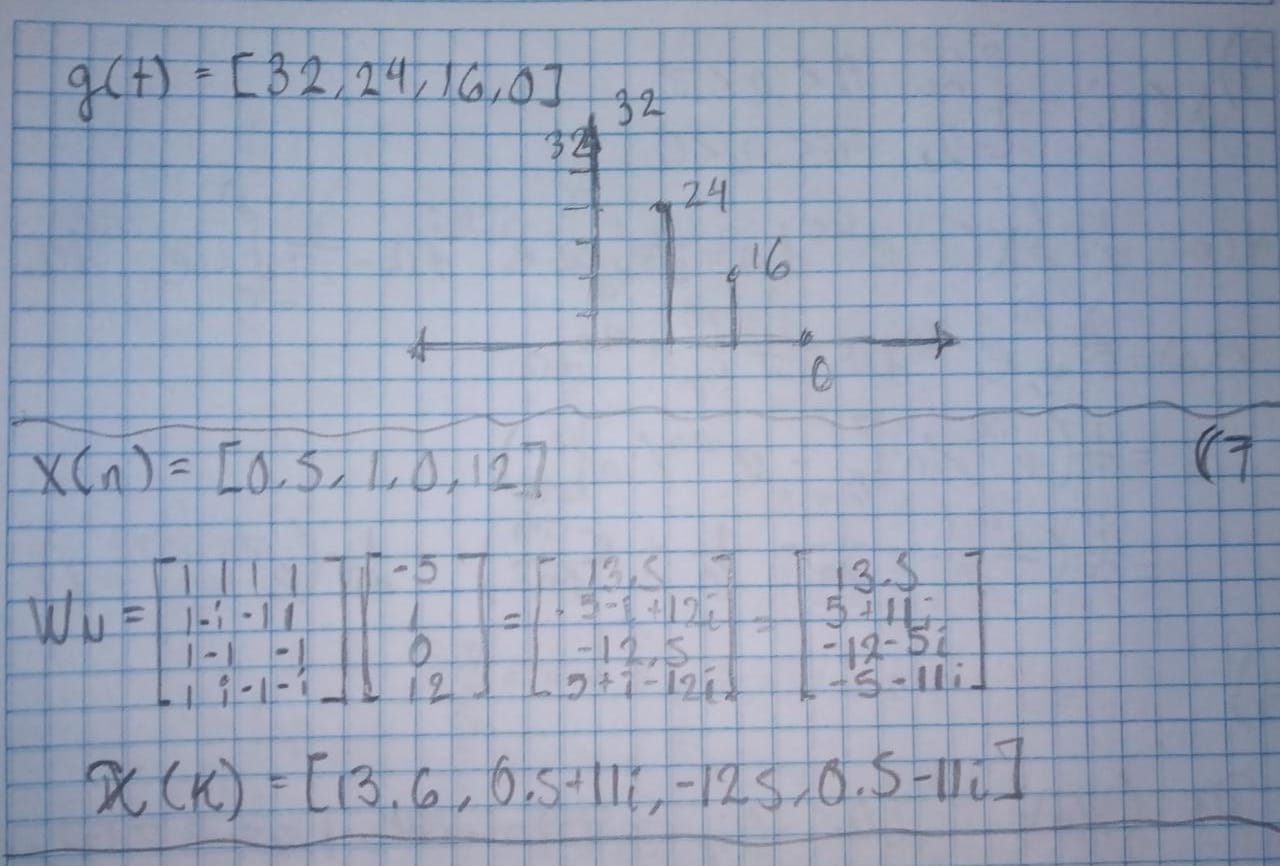 g(t) = [32, 24, 16, 0]
32
32
24
16
0
x(n) = [0.5, 1, 0, 12]
(7
WN = [1 1 1 1; 1 -i -1 1; 1 -1 -1; 1 i -1 -i] [-5; 1; 0; 12] = [13.5; .5-i+12i; -12.5; 5+i-12i] = [13.5; 5+11i; -12-5i; -5-11i]
X(K) = [13.6, 0.5+11i, -125, 0.5-11i]